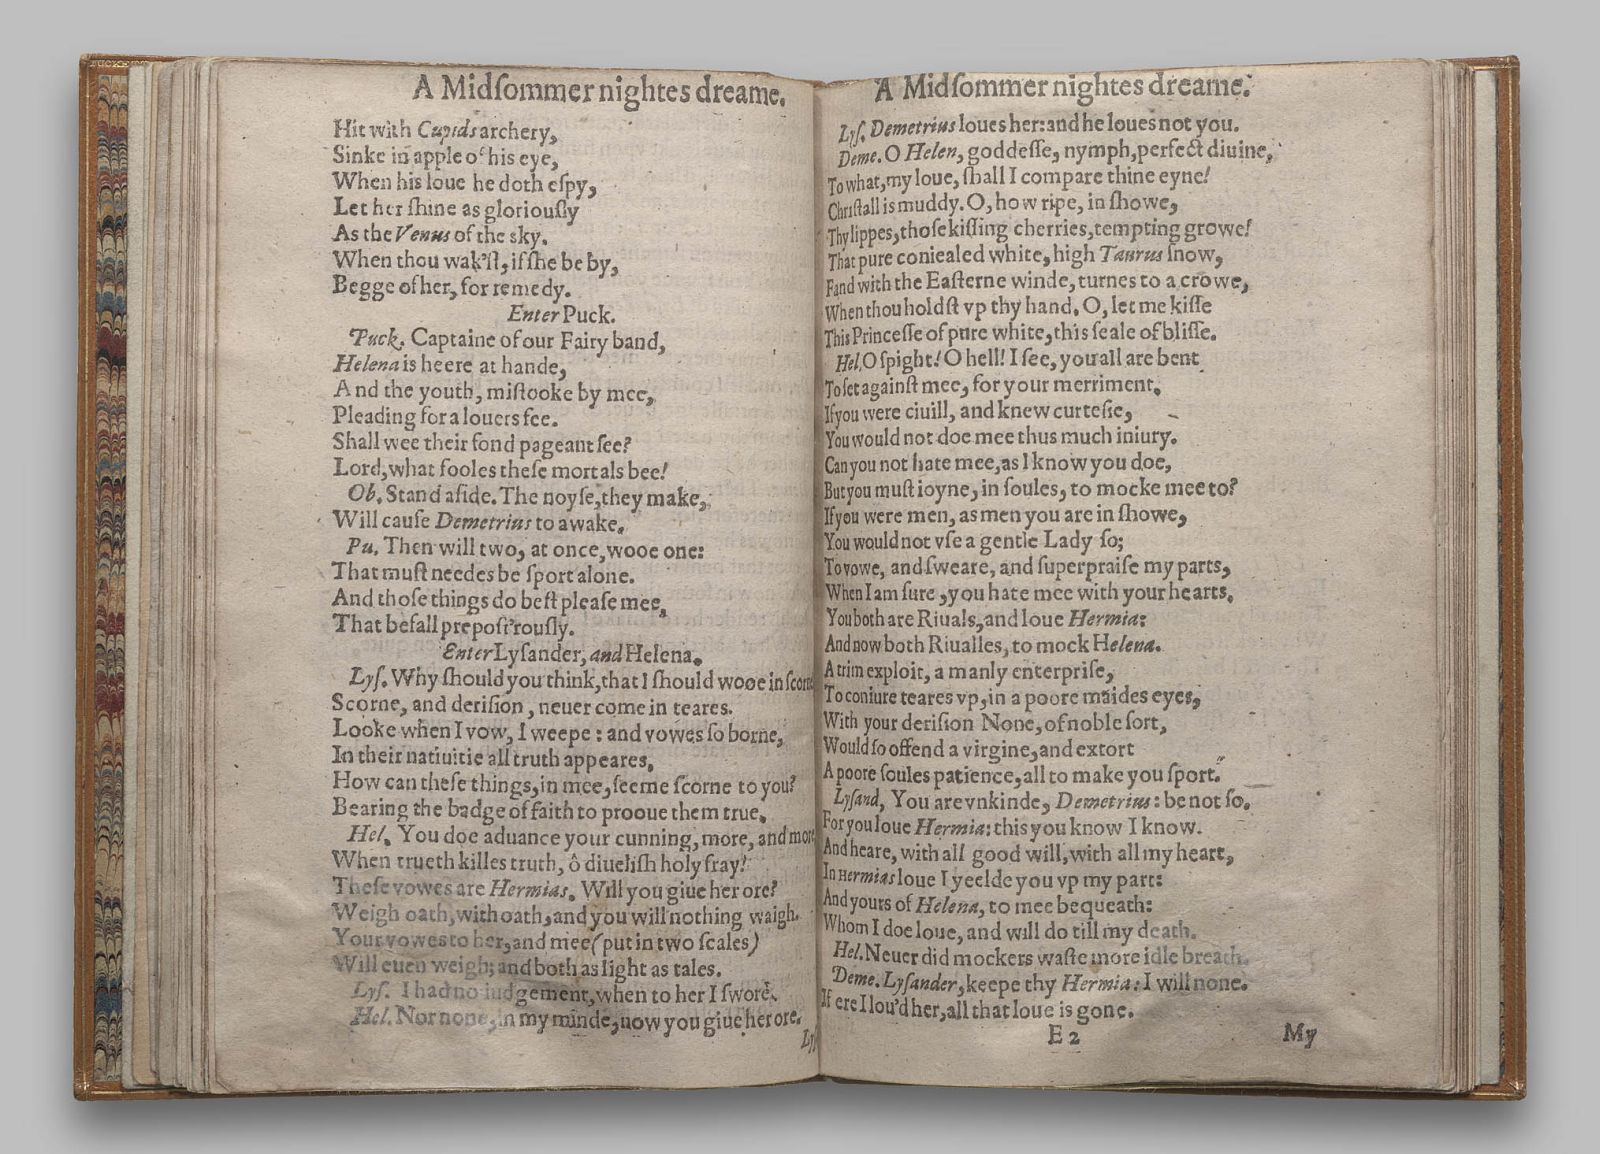 A Midſommer nightes dreame.
Hit with Cupids archery,
Sinke in apple of his eye,
When his loue he doth eſpy,
Let her ſhine as gloriouſly
As the Venus of the sky.
When thou wak'ſt, if ſhe be by,
Begge of her, for remedy.
Enter Puck.
Puck. Captaine of our Fairy band,
Helena is heere at hande,
And the youth, miſtooke by mee,
Pleading for a louers fee.
Shall wee their fond pageant ſee?
Lord, what fooles theſe mortals bee!
Ob. Stand aſide. The noyſe, they make,
Will cauſe Demetrius to awake.
Pu. Then will two, at once, wooe one:
That muſt needes be ſport alone.
And thoſe things do beſt pleaſe mee,
That befall prepoſt'rouſly.
Enter Lyſander, and Helena.
Lyſ. Why ſhould you think, that I ſhould wooe in ſcorne
Scorne, and deriſion, neuer come in teares.
Looke when I vow, I weepe: and vowes ſo borne,
In their natiuitie all truth appeares.
How can theſe things, in mee, ſeeme ſcorne to you?
Bearing the badge of faith to prooue them true.
Hel. You doe aduance your cunning, more, and more
When trueth killes truth, ô diueliſh holy fray!
Theſe vowes are Hermias. Will you giue her ore?
Weigh oath, with oath, and you will nothing waigh.
Your vowes to her, and mee (put in two ſcales)
Will euen weigh; and both as light as tales.
Lyſ. I had no iudgement, when to her I ſwore.
Hel. Nor none, in my minde, now you giue her ore.
Lyſ
A Midſommer nightes dreame.
Lyſ. Demetrius loues her: and he loues not you.
Deme. O Helen, goddeſſe, nymph, perfect diuine,
To what, my loue, ſhall I compare thine eyne!
Chriſtall is muddy. O, how ripe, in ſhowe,
Thy lippes, thoſe kiſſing cherries, tempting growe!
That pure coniealed white, high Taurus ſnow,
Fand with the Eaſterne winde, turnes to a crowe,
When thou holdſt vp thy hand. O, let me kiſſe
This Princeſſe of pure white, this ſeale of bliſſe.
Hel. O ſpight! O hell! I ſee, you all are bent
To ſet againſt mee, for your merriment.
If you were ciuill, and knew curteſie,
You would not doe mee thus much iniury.
Can you not hate mee, as I know you doe,
But you muſt ioyne, in ſoules, to mocke mee to?
If you were men, as men you are in ſhowe,
You would not vſe a gentle Lady ſo;
To vowe, and ſweare, and ſuperpraiſe my parts,
When I am ſure, you hate mee with your hearts.
You both are Riuals, and loue Hermia:
And now both Riualles, to mock Helena.
A trim exploit, a manly enterpriſe,
To coniure teares vp, in a poore maides eyes,
With your deriſion None, of noble ſort,
Would ſo offend a virgine, and extort
A poore ſoules patience, all to make you ſport.
Lyſand, You are vnkinde, Demetrius: be not ſo.
For you loue Hermia: this you know I know.
And heare, with all good will, with all my heart,
In Hermias loue I yeelde you vp my part:
And yours of Helena, to mee bequeath:
Whom I doe loue, and will do till my death.
Hel. Neuer did mockers waſte more idle breath.
Deme. Lyſander, keepe thy Hermia: I will none.
If ere I lou'd her, all that loue is gone.
E 2 My